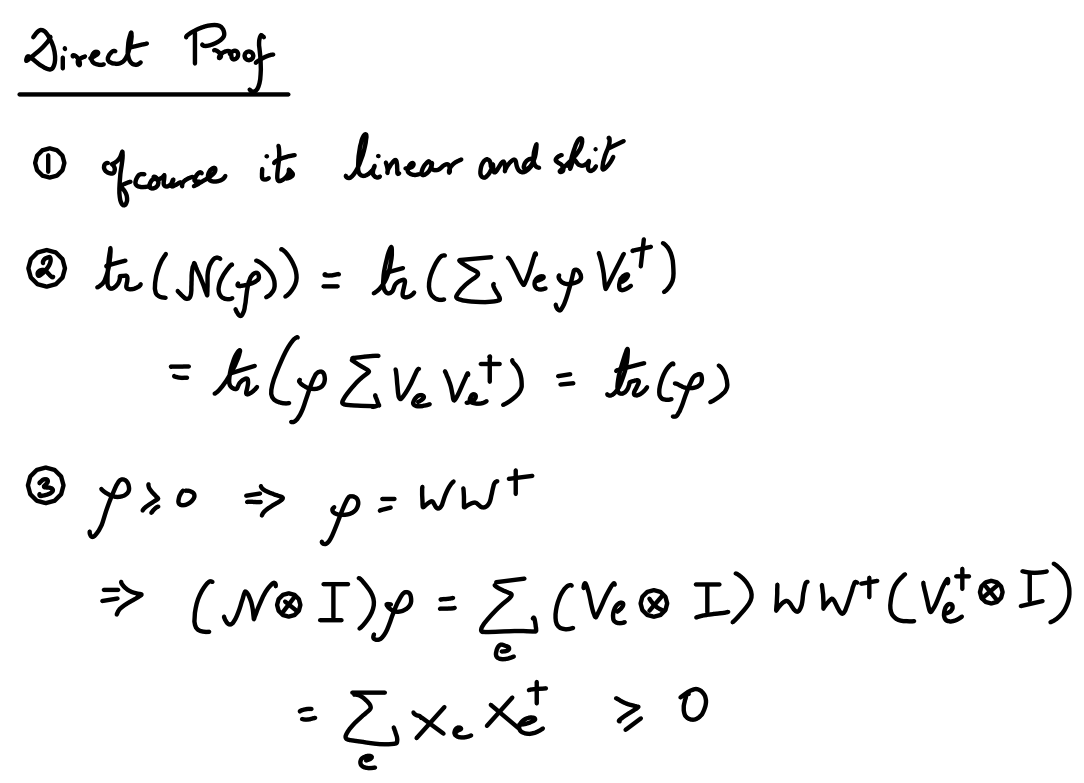 Direct Proof
① ofcourse its linear and shit
② tr(𝒩(ρ)) = tr(∑ Vₑ ρ Vₑ†)
= tr(ρ ∑ Vₑ Vₑ†) = tr(ρ)
③ ρ ⩾ 0 ⇒ ρ = WW†
⇒ (𝒩 ⊗ I)ρ = ∑ₑ (Vₑ ⊗ I) WW† (Vₑ† ⊗ I)
= ∑ₑ Xₑ Xₑ† ⩾ 0